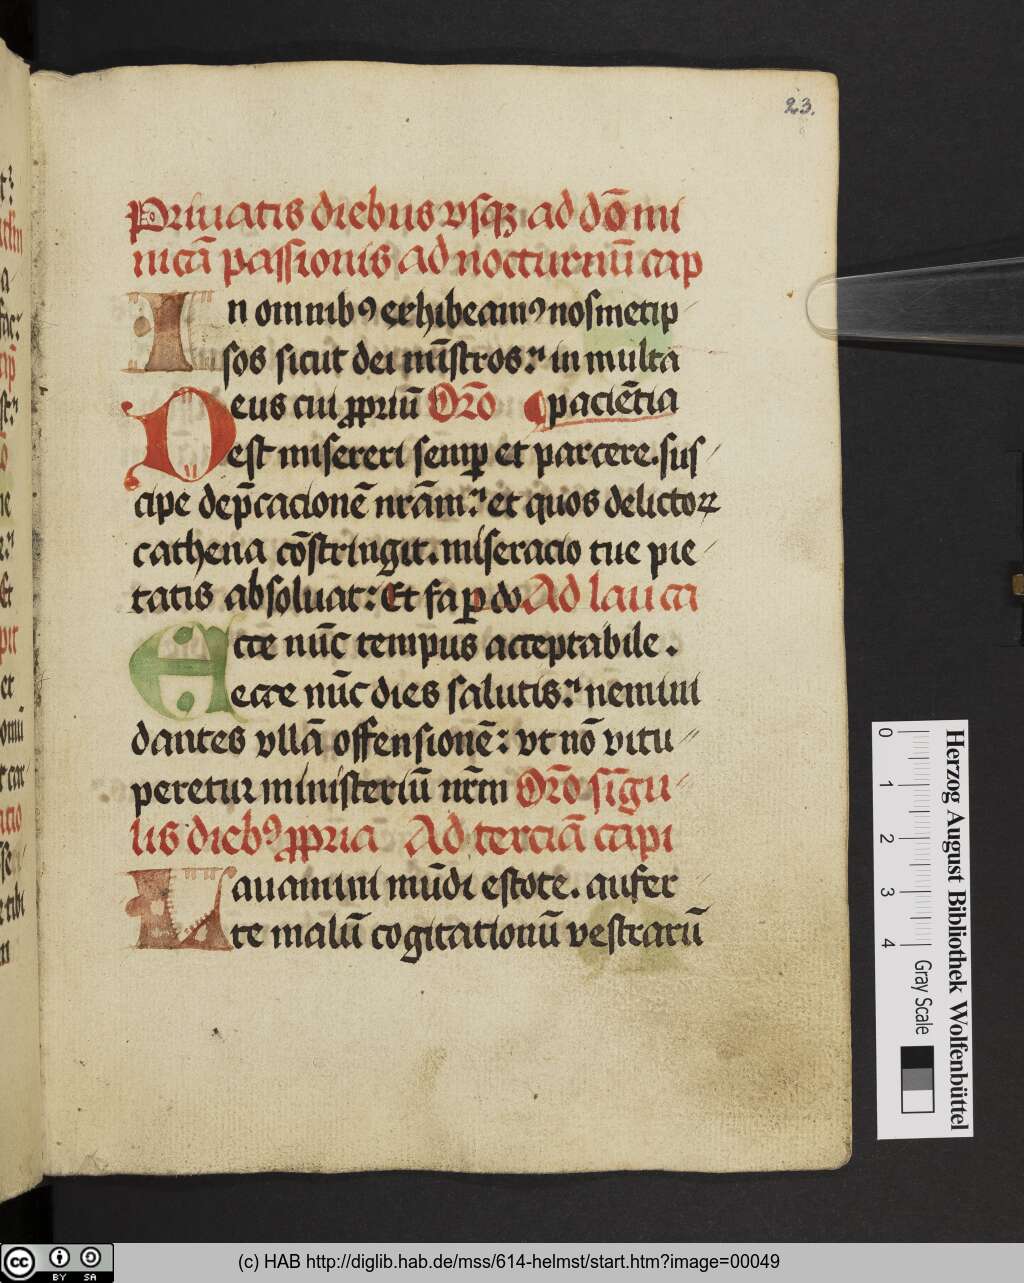 23.
Priuatis diebus vsqꝫ ad dōmi
nicā passionis ad nocturnū cap
In omnibꝰ exhibeamꝰ nosmetip
sos sicut dei mīstros: in multa
Deus cui ꝓpriū Orō paciētia
est misereri semꝑ et parcere. sus
cipe dep̄cacionē nrām: et quos delictoꝝ
cathena cōstringit. miseracio tue pie
tatis absoluat: Et fa ꝑ do Ad lau ca
Ecce nūc tempus acceptabile.
ecce nūc dies salutis: nemini
dantes vllā offensionē: vt nō vitu
peretur ministeriū nr̄m Orō singu
lis diebꝰ ꝓpria Ad terciā capi
Lauamini mūdi estote. aufer
te malū cogitationū vestrarū
0 1 2 3 4
Gray Scale
Herzog August Bibliothek Wolfenbüttel
cc BY SA
(c) HAB http://diglib.hab.de/mss/614-helmst/start.htm?image=00049